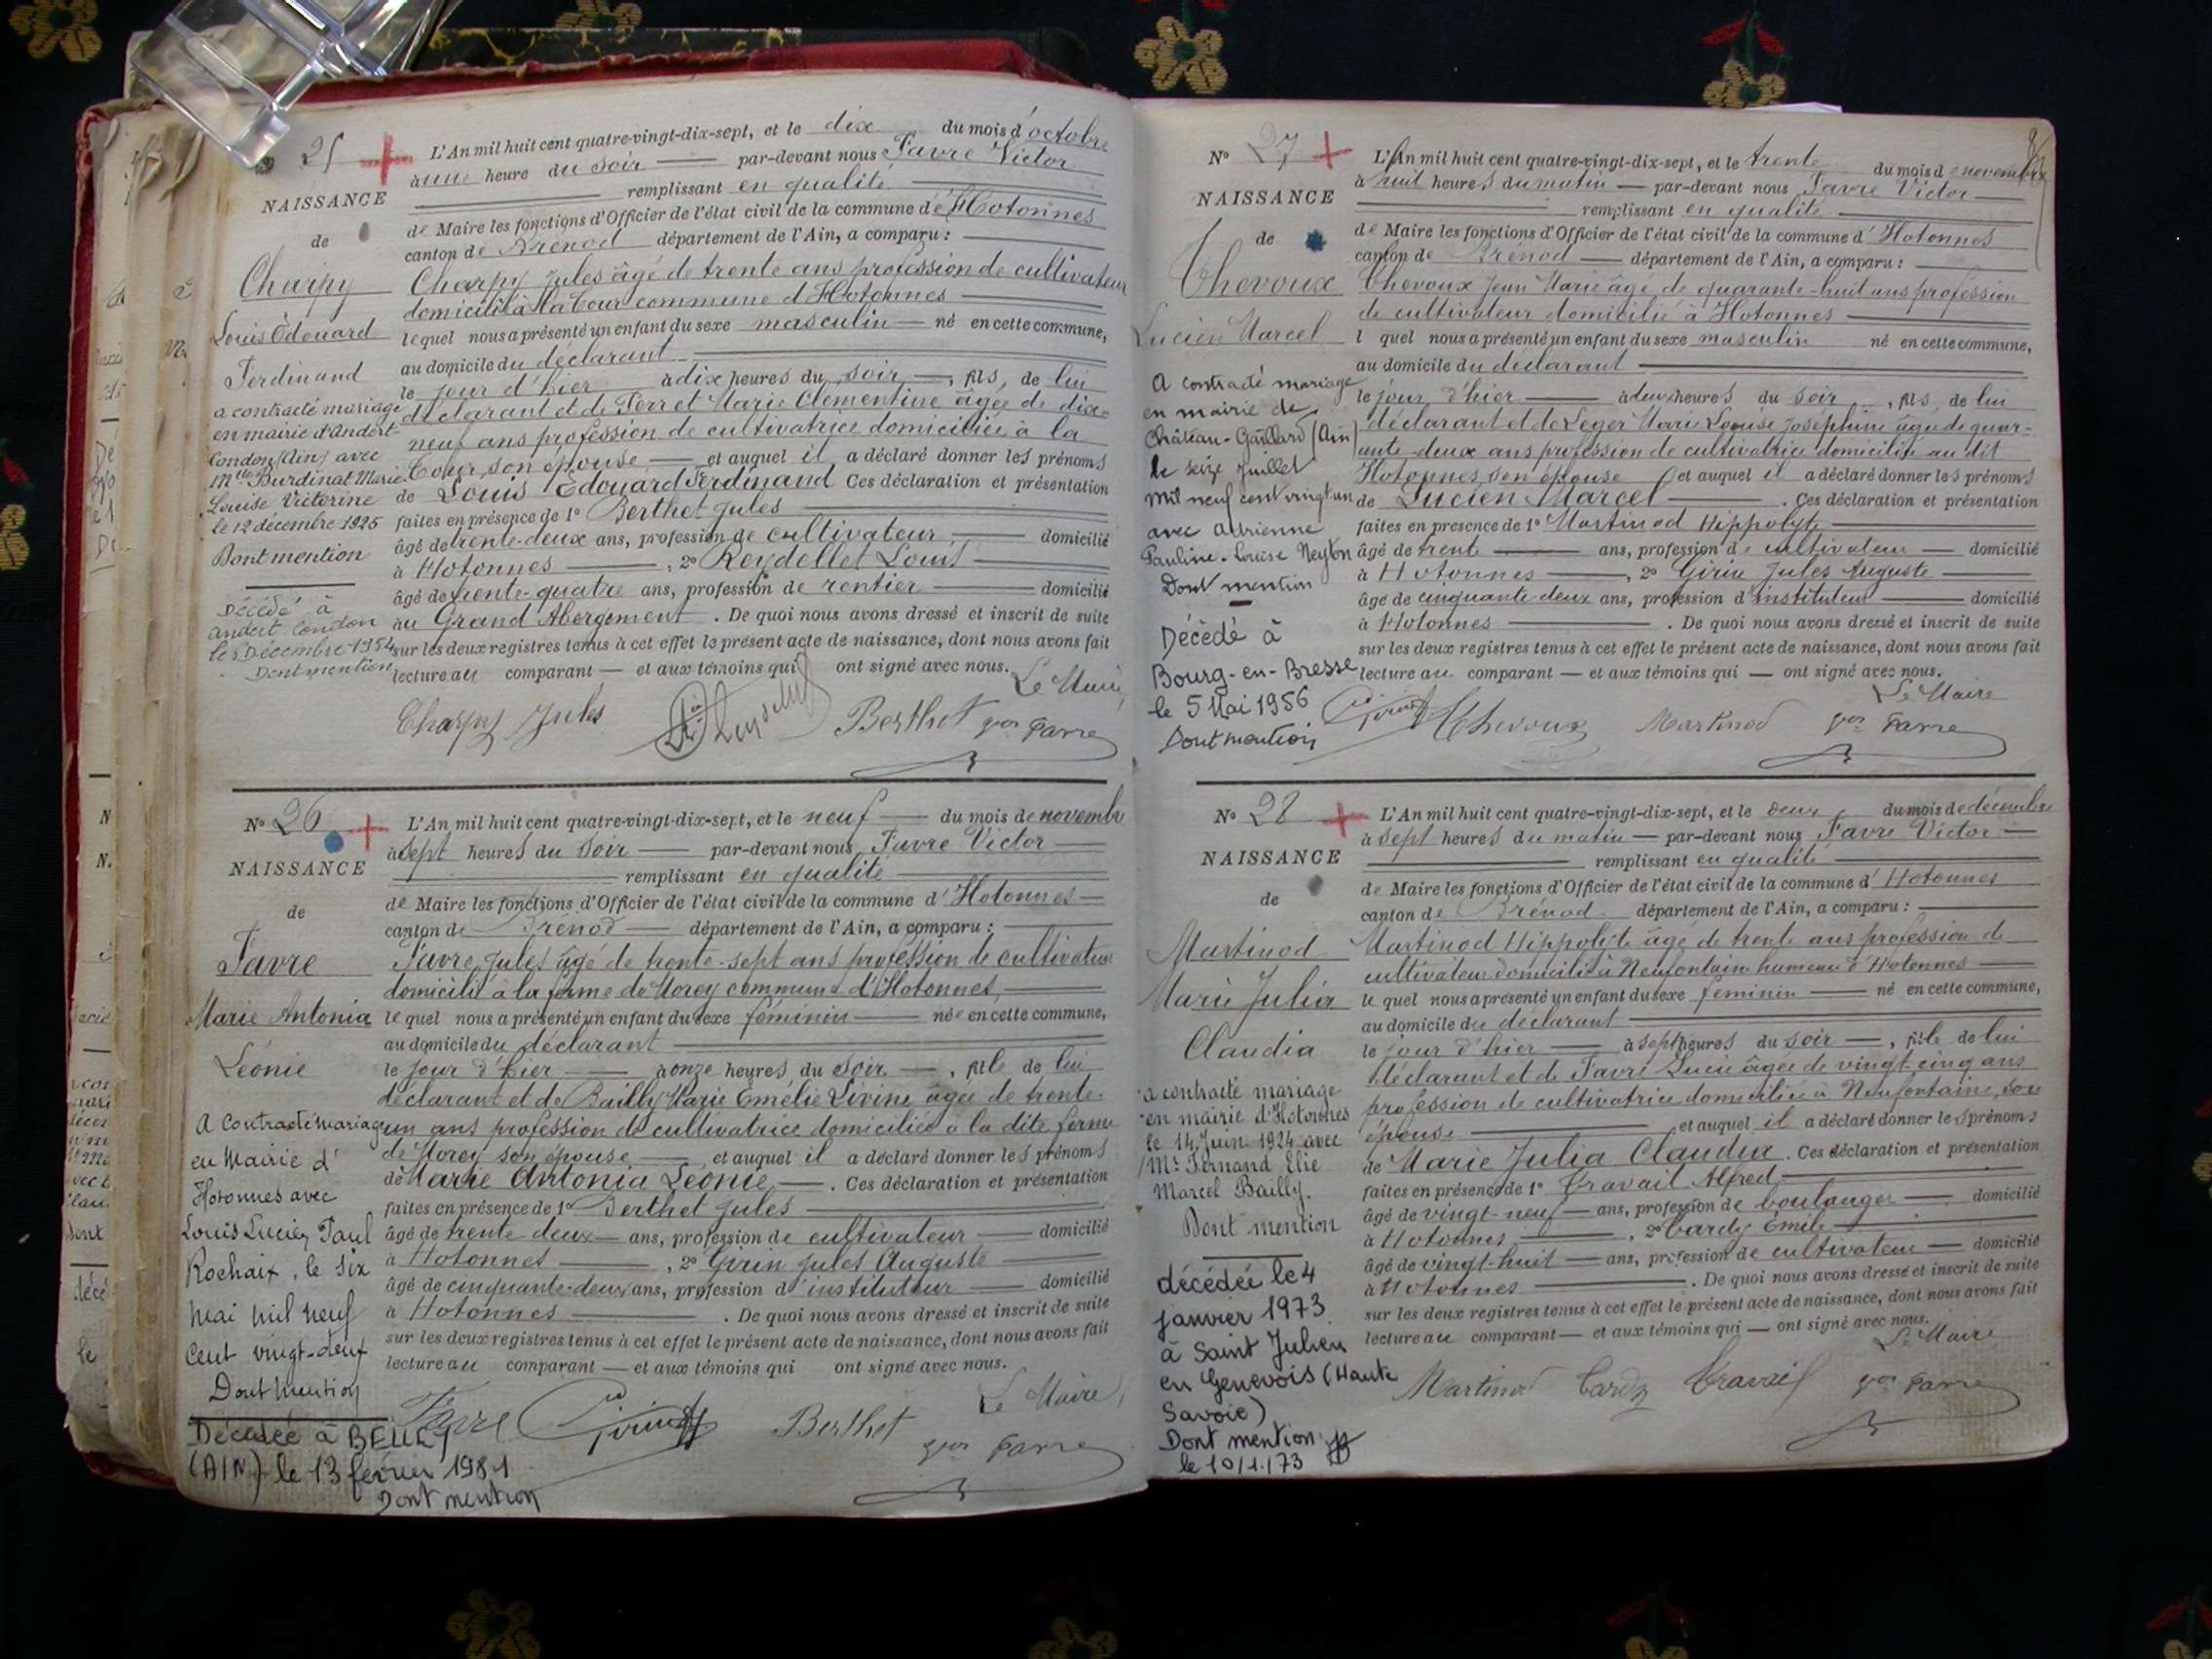 25
NAISSANCE
de
Charpy
Louis Edouard
Ferdinand
a contracté mariage
en mairie d'Andert-
Condon (Ain) avec
Mlle Burdinat Marie
Louise Victorine
le 12 décembre 1925
Dont mention
Décédé à
Andert Condon
le 5 Décembre 1954
Dont mention
L'An mil huit cent quatre-vingt-dix-sept, et le dix du mois d'octobre
à une heure du soir par-devant nous Favre Victor
remplissant en qualité
de Maire les fonctions d'Officier de l'état civil de la commune d'Hotonnes
canton de Brénod département de l'Ain, a comparu :
Charpy Jules âgé de trente ans profession de cultivateur
domicilié à la Cour commune d'Hotonnes
lequel nous a présenté un enfant du sexe masculin né en cette commune,
au domicile du déclarant
le jour d'hier à dix heures du soir, fils, de lui
déclarant et de Ferret Marie Clémentine âgée de dix-
neuf ans profession de cultivatrice domiciliée à la
Cour, son épouse et auquel il a déclaré donner les prénoms
de Louis Edouard Ferdinand Ces déclaration et présentation
faites en présence de 1° Berthet Jules
âgé de trente-deux ans, profession de cultivateur domicilié
à Hotonnes, 2° Reydellet Louis
âgé de trente-quatre ans, profession de rentier domicilié
au Grand Abergement. De quoi nous avons dressé et inscrit de suite
sur les deux registres tenus à cet effet le présent acte de naissance, dont nous avons fait
lecture au comparant et aux témoins qui ont signé avec nous.
Le Maire
Charpy Jules Berthet Vor Favre
No 26
NAISSANCE
de
Favre
Marie Antonia
Léonie
A contracté mariage
en Mairie d'
Hotonnes avec
Louis Lucien Paul
Rochaix, le six
mai mil neuf
cent vingt-deux
Dont mention
Décédée à BELLEY
(AIN) le 13 février 1981
Dont mention
L'An mil huit cent quatre-vingt-dix-sept, et le neuf du mois de novembre
à sept heures du soir par-devant nous Favre Victor
remplissant en qualité
de Maire les fonctions d'Officier de l'état civil de la commune d'Hotonnes
canton de Brénod département de l'Ain, a comparu :
Favre Jules âgé de trente-sept ans profession de cultivateur
domicilié à la ferme de Morey commune d'Hotonnes,
lequel nous a présenté un enfant du sexe féminin née en cette commune,
au domicile du déclarant
le jour d'hier à onze heures du soir, fille de lui
déclarant et de Bailly Marie Emélie Livine âgée de trente-
un ans profession de cultivatrice domiciliée à la dite ferme
de Morey son épouse et auquel il a déclaré donner les prénoms
de Marie Antonia Léonie. Ces déclaration et présentation
faites en présence de 1° Berthet Jules
âgé de trente deux ans, profession de cultivateur domicilié
à Hotonnes, 2° Girin Jules Auguste
âgé de cinquante-deux ans, profession d'instituteur domicilié
à Hotonnes. De quoi nous avons dressé et inscrit de suite
sur les deux registres tenus à cet effet le présent acte de naissance, dont nous avons fait
lecture au comparant et aux témoins qui ont signé avec nous.
Le Maire
Favre Girin Berthet Vor Favre
No 27
NAISSANCE
de
Chevoux
Lucien Marcel
A contracté mariage
en mairie de
Château-Gaillard (Ain)
le seize Juillet
mil neuf cent vingt un
avec Adrienne
Pauline-Louise Neyton
Dont mention
Décédé à
Bourg-en-Bresse
le 5 Mai 1956
Dont mention
L'An mil huit cent quatre-vingt-dix-sept, et le trente du mois de novembre
à huit heures du matin par-devant nous Favre Victor
remplissant en qualité
de Maire les fonctions d'Officier de l'état civil de la commune d'Hotonnes
canton de Brénod département de l'Ain, a comparu :
Chevoux Jean Marie âgé de quarante-huit ans profession
de cultivateur domicilié à Hotonnes
l quel nous a présenté un enfant du sexe masculin né en cette commune,
au domicile du déclarant
le jour d'hier à deux heures du soir, fils, de lui
déclarant et de Leger Marie Louise Joséphine âgée de quar-
ante-deux ans profession de cultivatrice domiciliée au dit
Hotonnes son épouse et auquel il a déclaré donner les prénoms
de Lucien Marcel. Ces déclaration et présentation
faites en présence de 1° Martinod Hippolyte
âgé de trente ans, profession de cultivateur domicilié
à Hotonnes, 2° Girin Jules Auguste
âgé de cinquante-deux ans, profession d'instituteur domicilié
à Hotonnes. De quoi nous avons dressé et inscrit de suite
sur les deux registres tenus à cet effet le présent acte de naissance, dont nous avons fait
lecture au comparant et aux témoins qui ont signé avec nous.
Le Maire
Girin Chevoux Martinod Vor Favre
No 28
NAISSANCE
de
Martinod
Marie Julia
Claudia
a contracté mariage
en mairie d'Hotonnes
le 14 Juin 1924 avec
Mr Fernand Elie
Marcel Bailly.
Dont mention
décédée le 4
janvier 1973
à Saint Julien
en Genevois (Haute
Savoie)
Dont mention
le 10/1/73
L'An mil huit cent quatre-vingt-dix-sept, et le deux du mois de décembre
à sept heures du matin par-devant nous Favre Victor
remplissant en qualité
de Maire les fonctions d'Officier de l'état civil de la commune d'Hotonnes
canton de Brénod département de l'Ain, a comparu :
Martinod Hippolyte âgé de trente ans profession de
cultivateur domicilié à Neufontaine hameau d'Hotonnes
le quel nous a présenté un enfant du sexe féminin né en cette commune,
au domicile du déclarant
le jour d'hier à sept heures du soir, fille de lui
déclarant et de Favre Lucie âgée de vingt-cinq ans
profession de cultivatrice domiciliée à Neufontaine, son
épouse et auquel il a déclaré donner les prénoms
de Marie Julia Claudia. Ces déclaration et présentation
faites en présence de 1° Travail Alfred
âgé de vingt-neuf ans, profession de boulanger domicilié
à Hotonnes, 2° Cardy Emile
âgé de vingt-huit ans, profession de cultivateur domicilié
à Hotonnes. De quoi nous avons dressé et inscrit de suite
sur les deux registres tenus à cet effet le présent acte de naissance, dont nous avons fait
lecture au comparant et aux témoins qui ont signé avec nous.
Le Maire
Martinod Cardy Travail Vor Favre